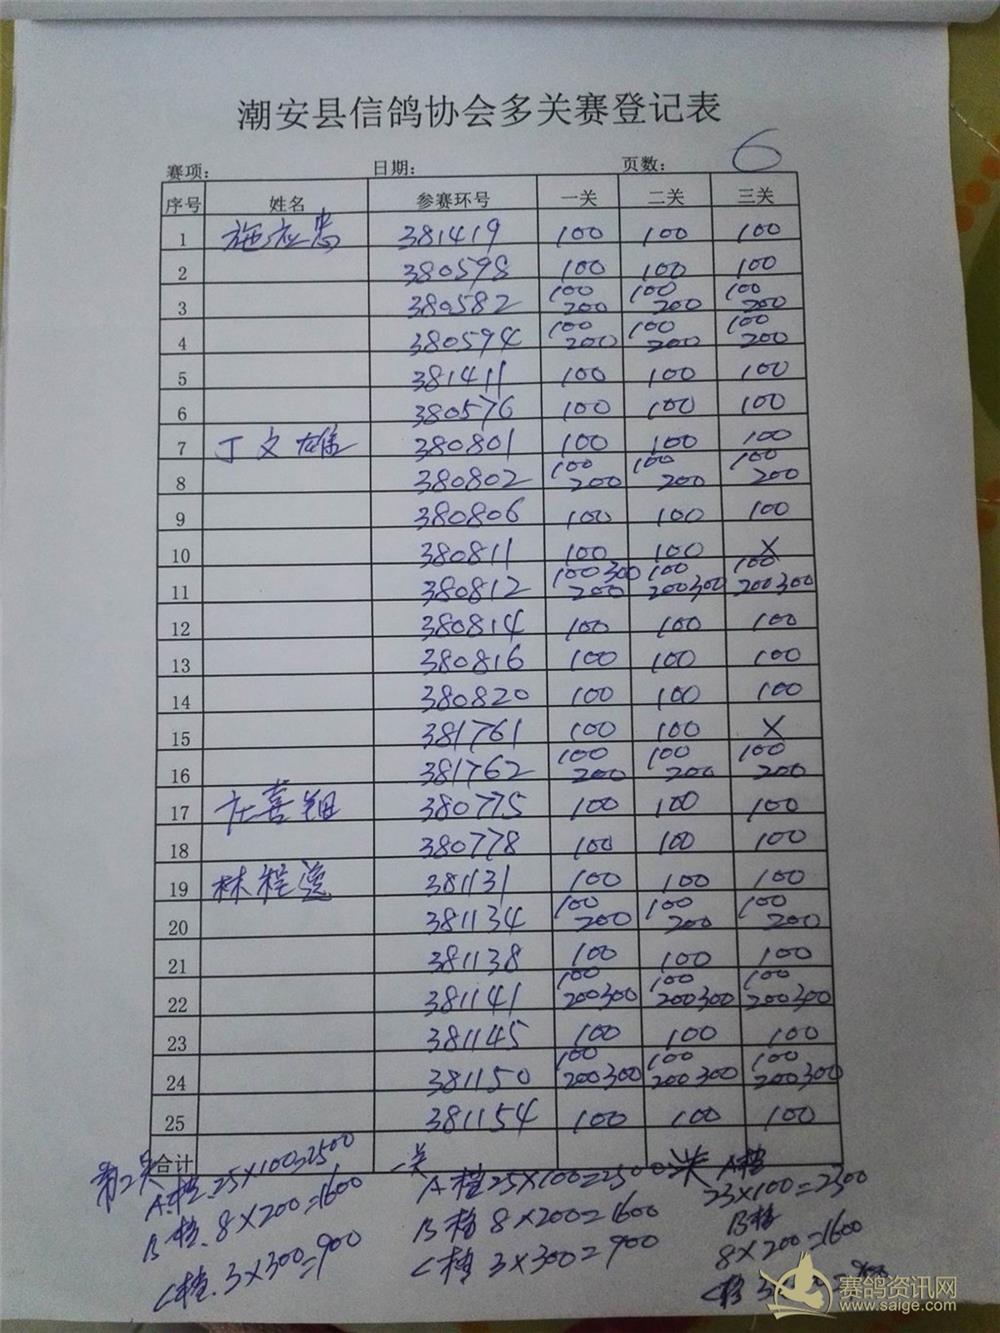 潮安县信鸽协会多关赛登记表
赛项： 日期： 页数： 6
序号 姓名 参赛环号 一关 二关 三关
1 施应忠 381419 100 100 100
2 380598 100 100 100
3 380582 100 200 100 200 100 200
4 380594 100 200 100 200 100 200
5 381411 100 100 100
6 380576 100 100 100
7 丁文雄 380801 100 100 100
8 380802 100 200 100 200 100 200
9 380806 100 100 100
10 380811 100 100 X
11 380812 100 300 200 100 200 300 100 200 300
12 380814 100 100 100
13 380816 100 100 100
14 380820 100 100 100
15 381761 100 100 X
16 381762 100 200 100 200 100 200
17 庄喜钿 380775 100 100 100
18 380778 100 100 100
19 林程逸 381131 100 100 100
20 381134 100 200 100 200 100 200
21 381138 100 100 100
22 381141 100 200 300 100 200 300 100 200 300
23 381145 100 100 100
24 381150 100 200 300 100 200 300 100 200 300
25 381154 100 100 100
合计
第二关
A档.25×100=2500
B档.8×200=1600
C档.3×300=900
一关
A档25×100=2500
B档8×200=1600
C档3×300=900
三关 A档
23×100=2300
B档
8×200=1600
C档
赛鸽资讯网
www.saige.com